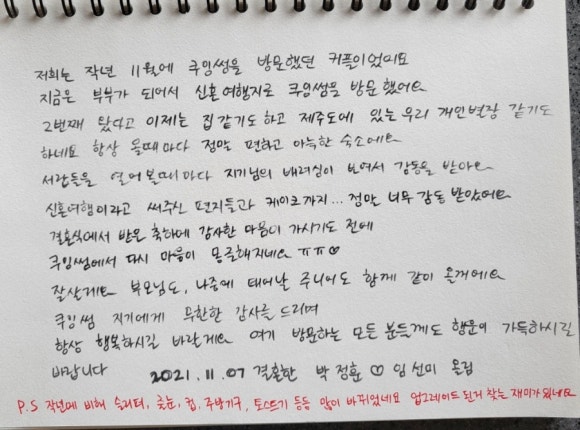 저희는 작년 11월에 쿠잉썸을 방문했던 커플이었어요
지금은 부부가 되어서 신혼여행지로 쿠잉썸을 방문했어요
2번째 왔다고 이제는 집 같기도 하고 제주도에 있는 우리 개인별장 같기도
하네요 항상 올때마다 정말 편하고 아늑한 숙소에요
서랍들을 열어볼때마다 지기님의 배려심이 보여서 감동을 받아요
신혼여행이라고 써주신 편지들과 케이크까지... 정말 너무 감동 받았어요
결혼식에서 받은 축하에 감사한 마음이 가시기도 전에
쿠잉썸에서 다시 마음이 몽글해지네요 ㅠㅠ♡
잘살게요 부모님도, 나중에 태어날 주니어도 함께 같이 올게요
쿠잉썸 지기에게 무한한 감사를 드리며
항상 행복하시길 바랄게요 여기 방문하는 모든 분들께도 행운이 가득하시길
바랍니다 2021.11.07 결혼한 박정훈 ♡ 임선미 올림
P.S 작년에 비해 슬리퍼, 화분, 컵, 주방기구, 토스트기 등등 많이 바뀌었네요 업그레이드 된거 찾는 재미가 있네요